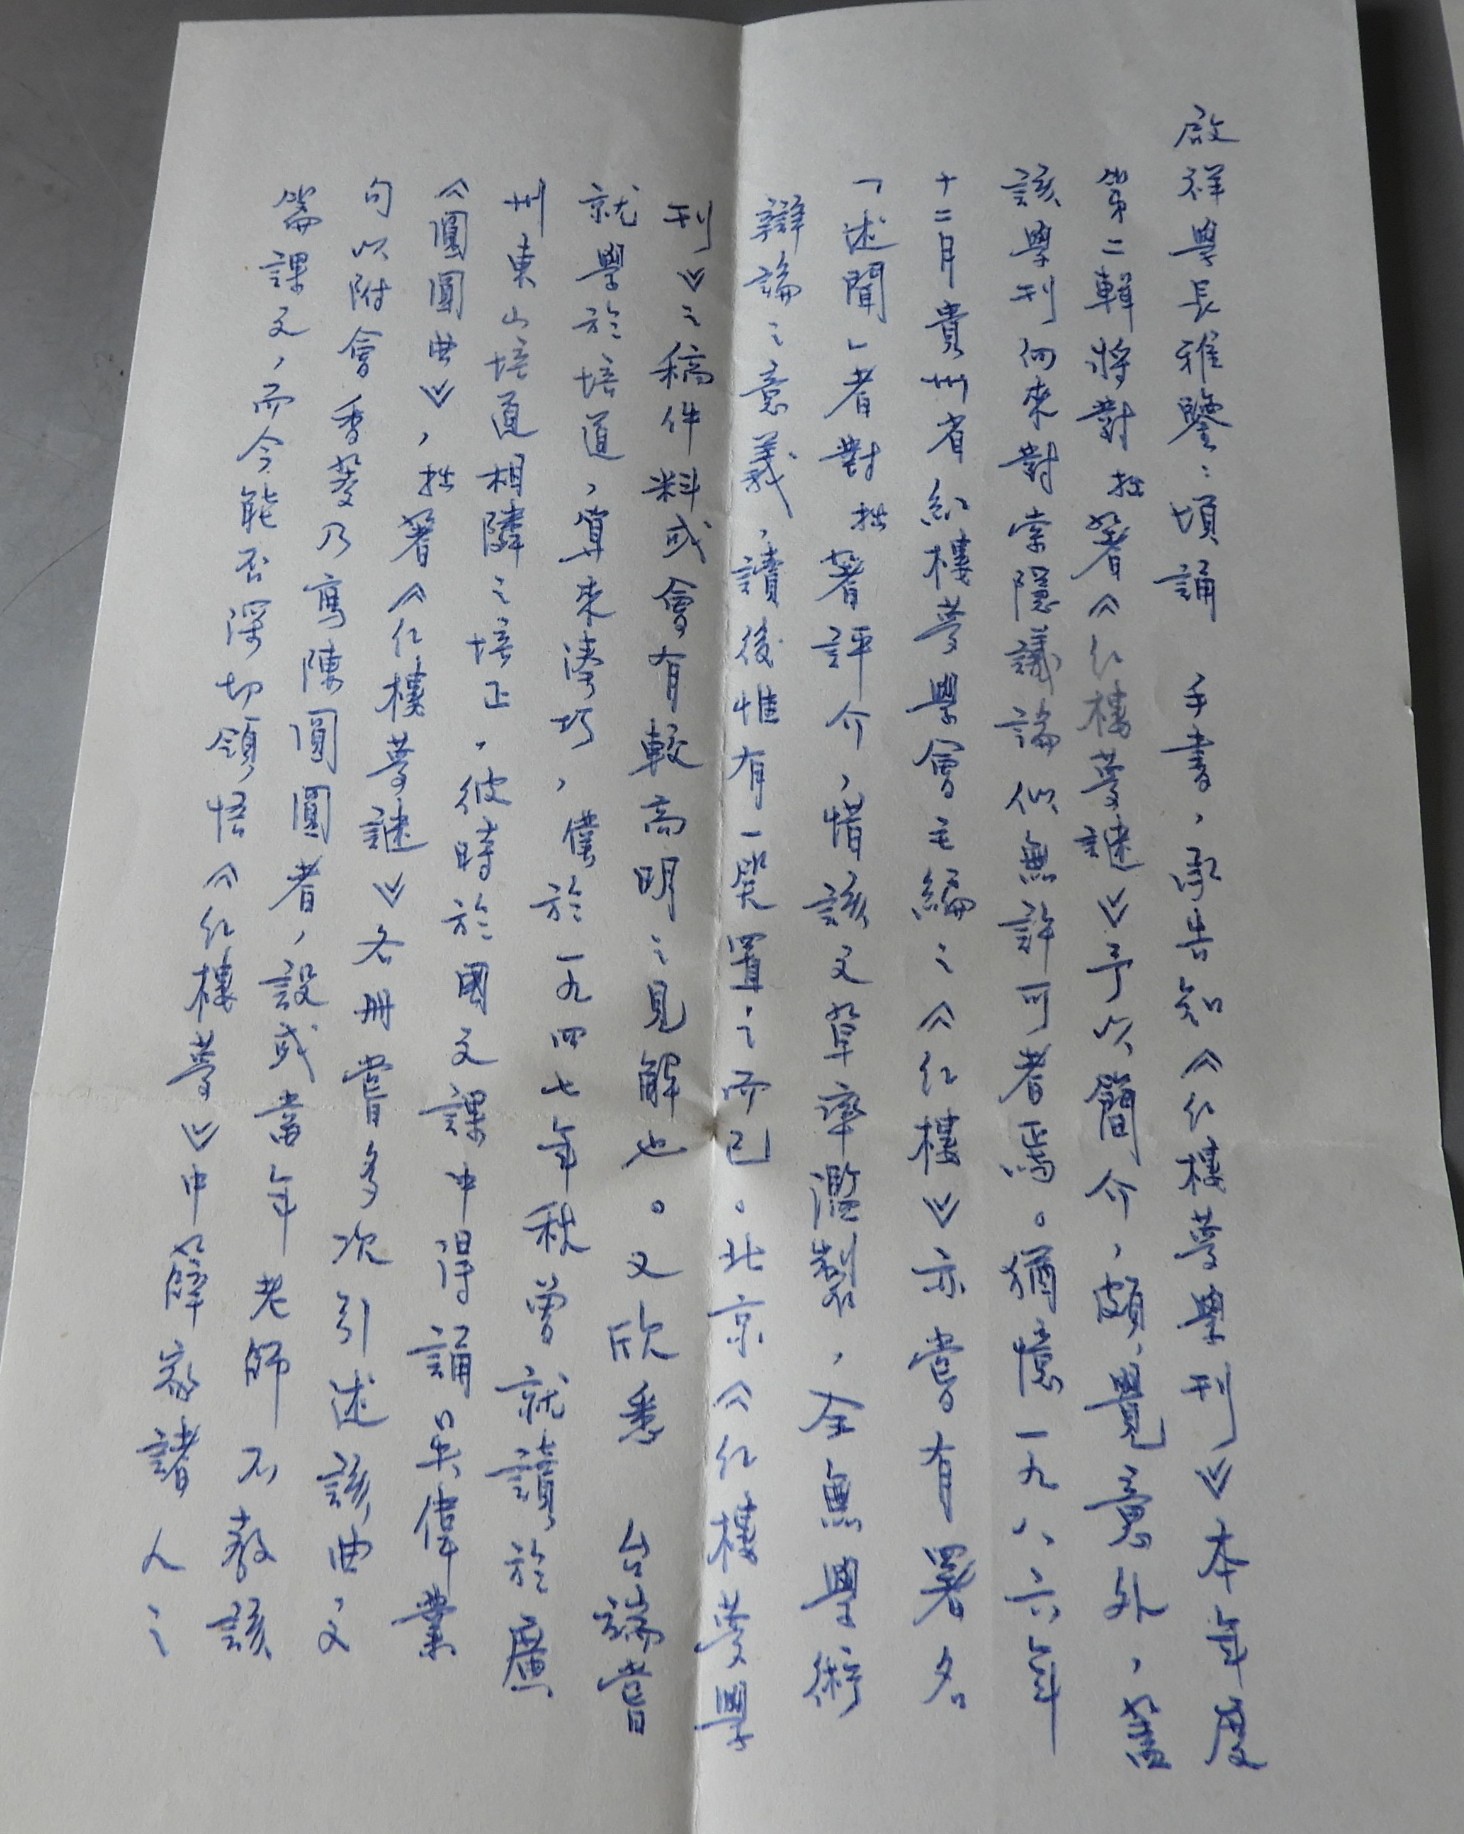 啟祥學長雅鑒：頃誦　手書，承告知《紅樓夢學刊》本年度
第二輯將對拙著《紅樓夢謎》予以簡介，頗覺意外，蓋
該學刊向來對索隱議論似無許可者焉。猶憶一九八六年
十二月貴州省紅樓夢學會主編之《紅樓》亦嘗有署名
「述聞」者對拙著評介，惜該文草率濫製，全無學術
辯論之意義，讀後惟有一笑置之而已。北京《紅樓夢學
刊》之稿件料或會有較高明之見解也。又欣悉　台端嘗
就學於培道，算來湊巧，僕於一九四七年秋曾就讀於廣
州東山培道相隣之培正，彼時於國文課中得誦吳偉業
《圓圓曲》，拙著《紅樓夢謎》各冊嘗多次引述該曲文
句以附會香菱乃寫陳圓圓者，設或當年老師不教該
篇課文，而今能否深切領悟《紅樓夢》中薛家諸人之